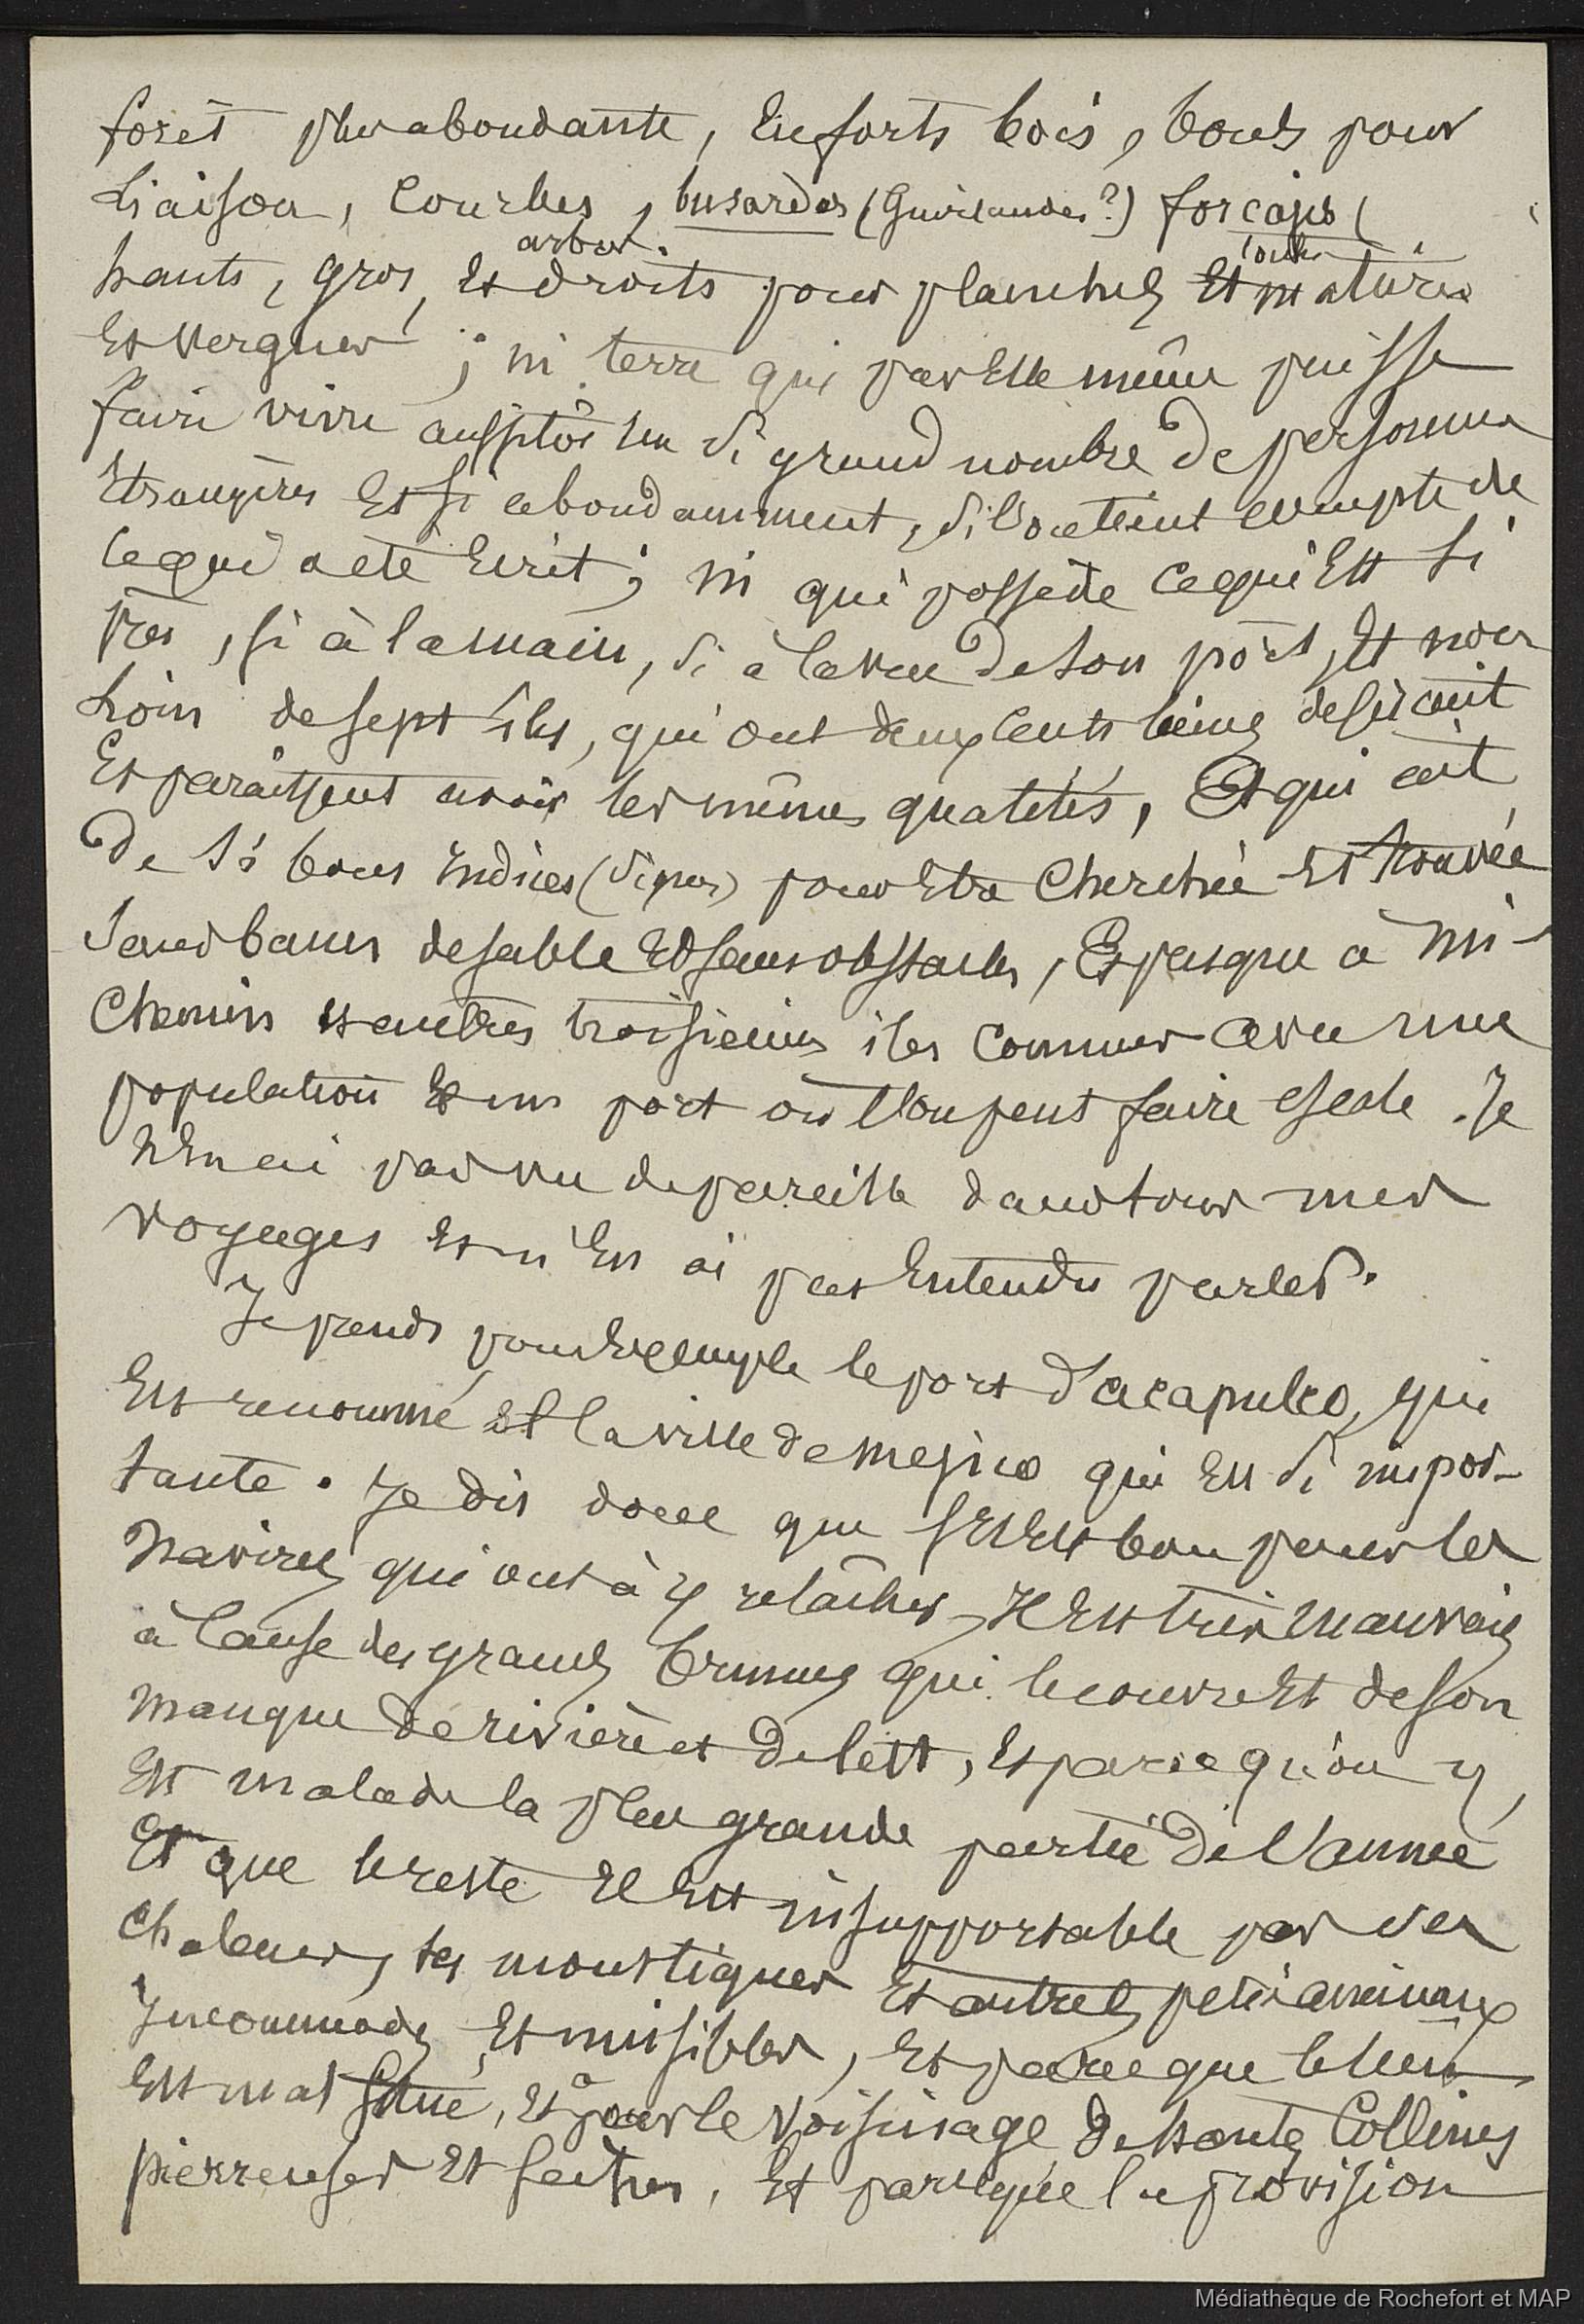 forêt plus abondante, en forts bois, bons pour
liaison, courbes, busardas (Guirlandes?) forcajes (
arbres. toute
hauts, gros, et droits pour planches et mâtures
et vergues ; ni terre qui par elle même puisse
faire vivre aussitôt un si grand nombre de personnes
étrangères et si abondamment, si l'on tient compte de
ce qui a été écrit ; ni qui possède ce qui est si
près, si à la main, si à la vue de son port, et non
loin de sept îles, qui ont deux cents lieues de circuit
et paraissent avoir les mêmes qualités, et qui ait
de si bons indices (signes) pour être cherchée et trouvée
sans bancs de sable et sans obstacles, et presque à mi-
chemin et autres troisièmes îles connues avec une
population et un port où l'on peut faire escale. Je
n'en ai pas vu de pareille dans tous mes
voyages et n'en ai pas entendu parler.
Je prends pour exemple le port d'Acapulco, qui
est renommé et la ville de Mejico qui est si impor-
tante. Je dis donc que s'il est bon pour les
navires qui ont à y relâcher, il est très mauvais
à cause des grandes brumes qui le couvre et de son
manque de rivière et de lest, et parce qu'on y
est malade la plus grande partie de l'année
et que le reste il est insupportable par ses
chaleurs, ses moustiques et autres petits animaux
incommodes et nuisibles, et parce que le lieu
est mal situé, et pour le voisinage de hautes collines
pierreuses et sèches, et parce que la provision
Médiathèque de Rochefort et MAP